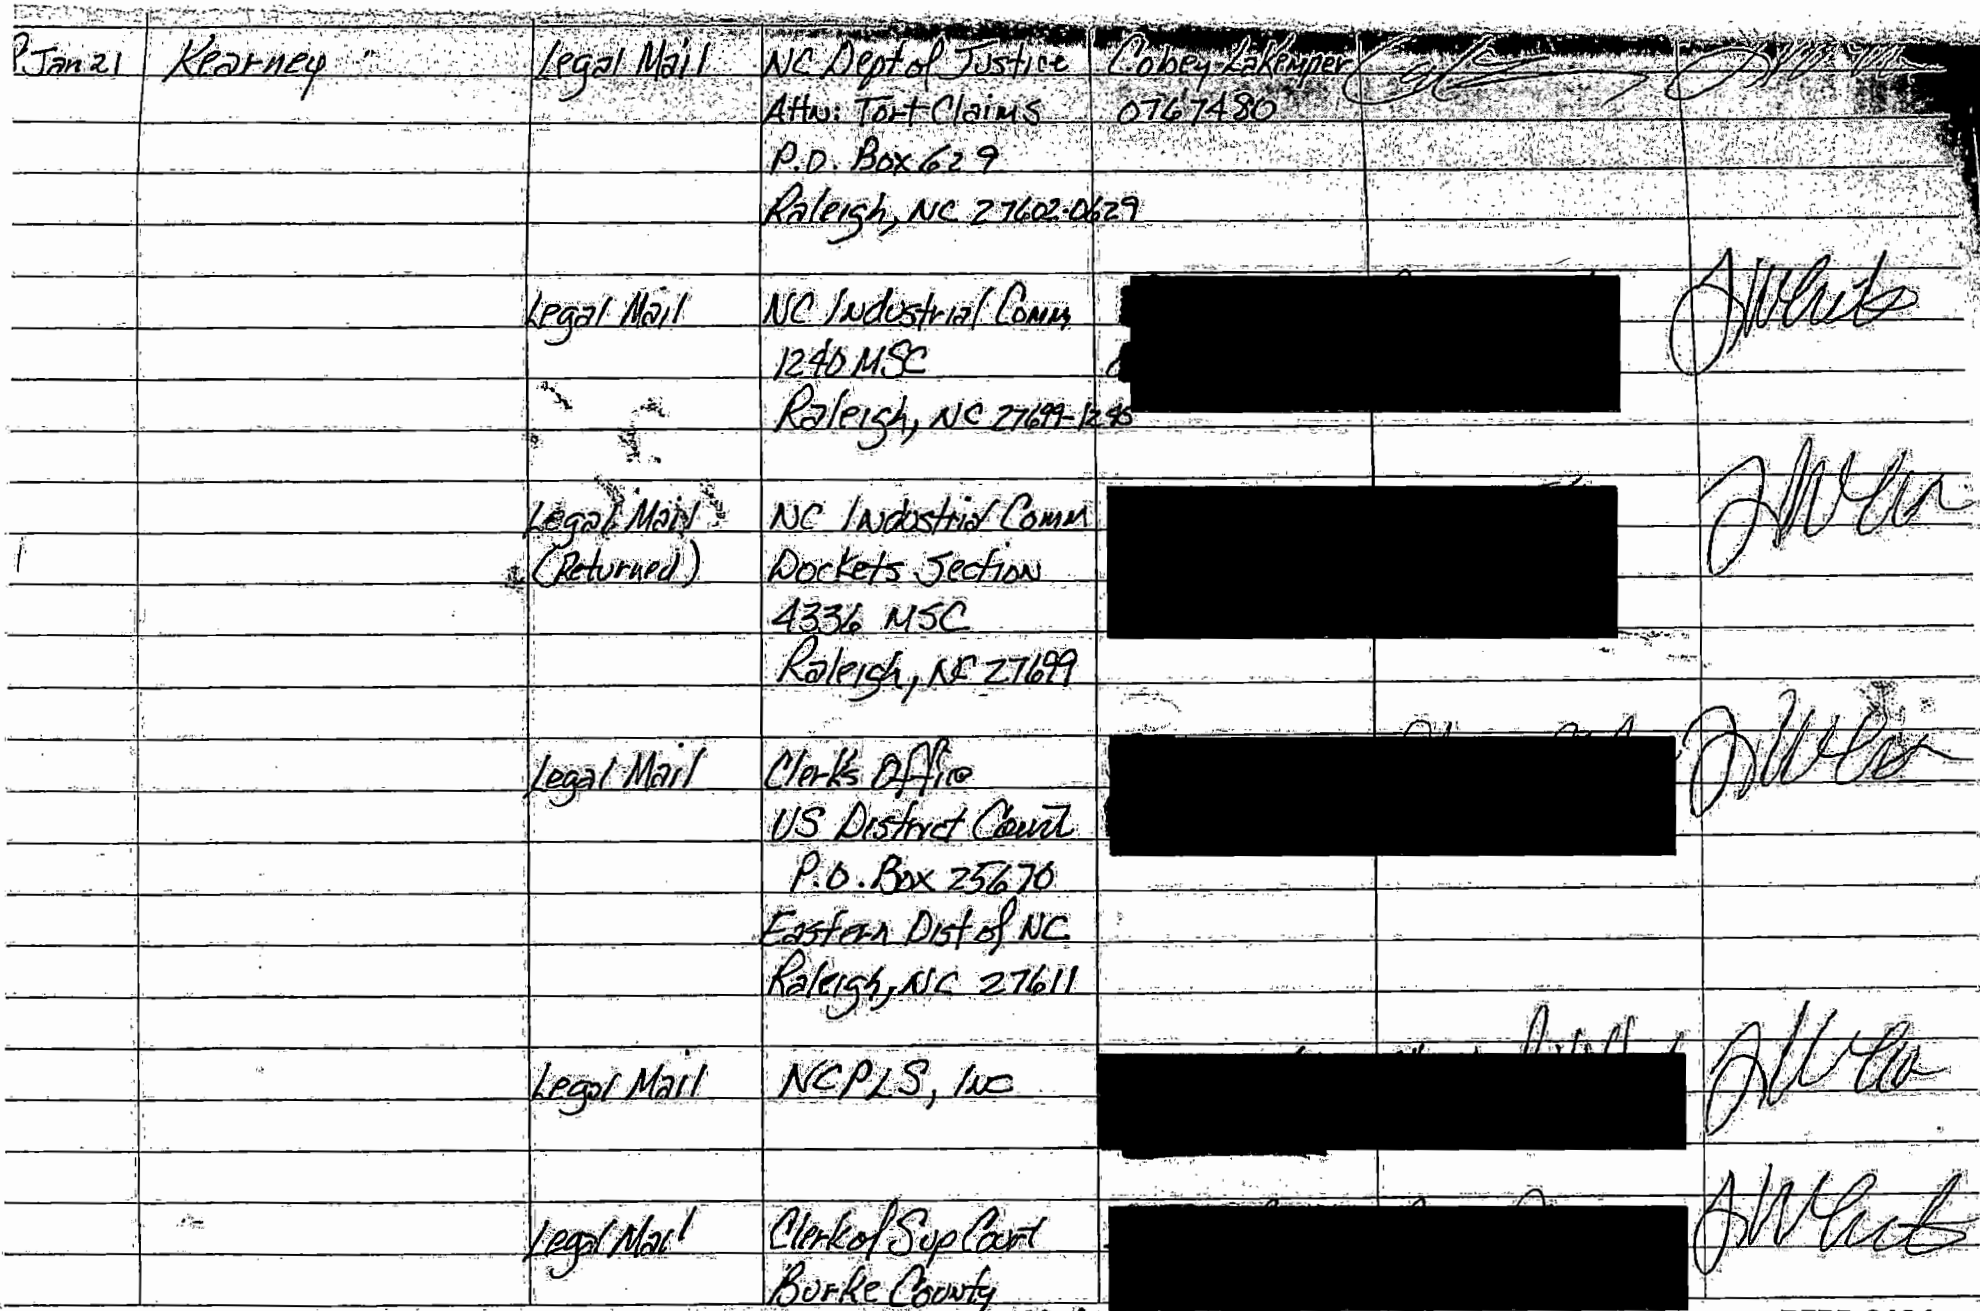 Jan 21 Kearney Legal Mail NC Dept of Justice Cobey LaKemper
Attn: Tort Claims 0767480
P.O. Box 629
Raleigh, NC 27602-0629
Legal Mail NC Industrial Comm
1240 MSC
Raleigh, NC 27699-1240
Legal Mail NC Industrial Comm
(Returned) Dockets Section
4336 MSC
Raleigh, NC 27699
Legal Mail Clerk's Office
US District Court
P.O. Box 25670
Eastern Dist of NC
Raleigh, NC 27611
Legal Mail NCPLS, Inc
Legal Mail Clerk of Sup Court
Burke County